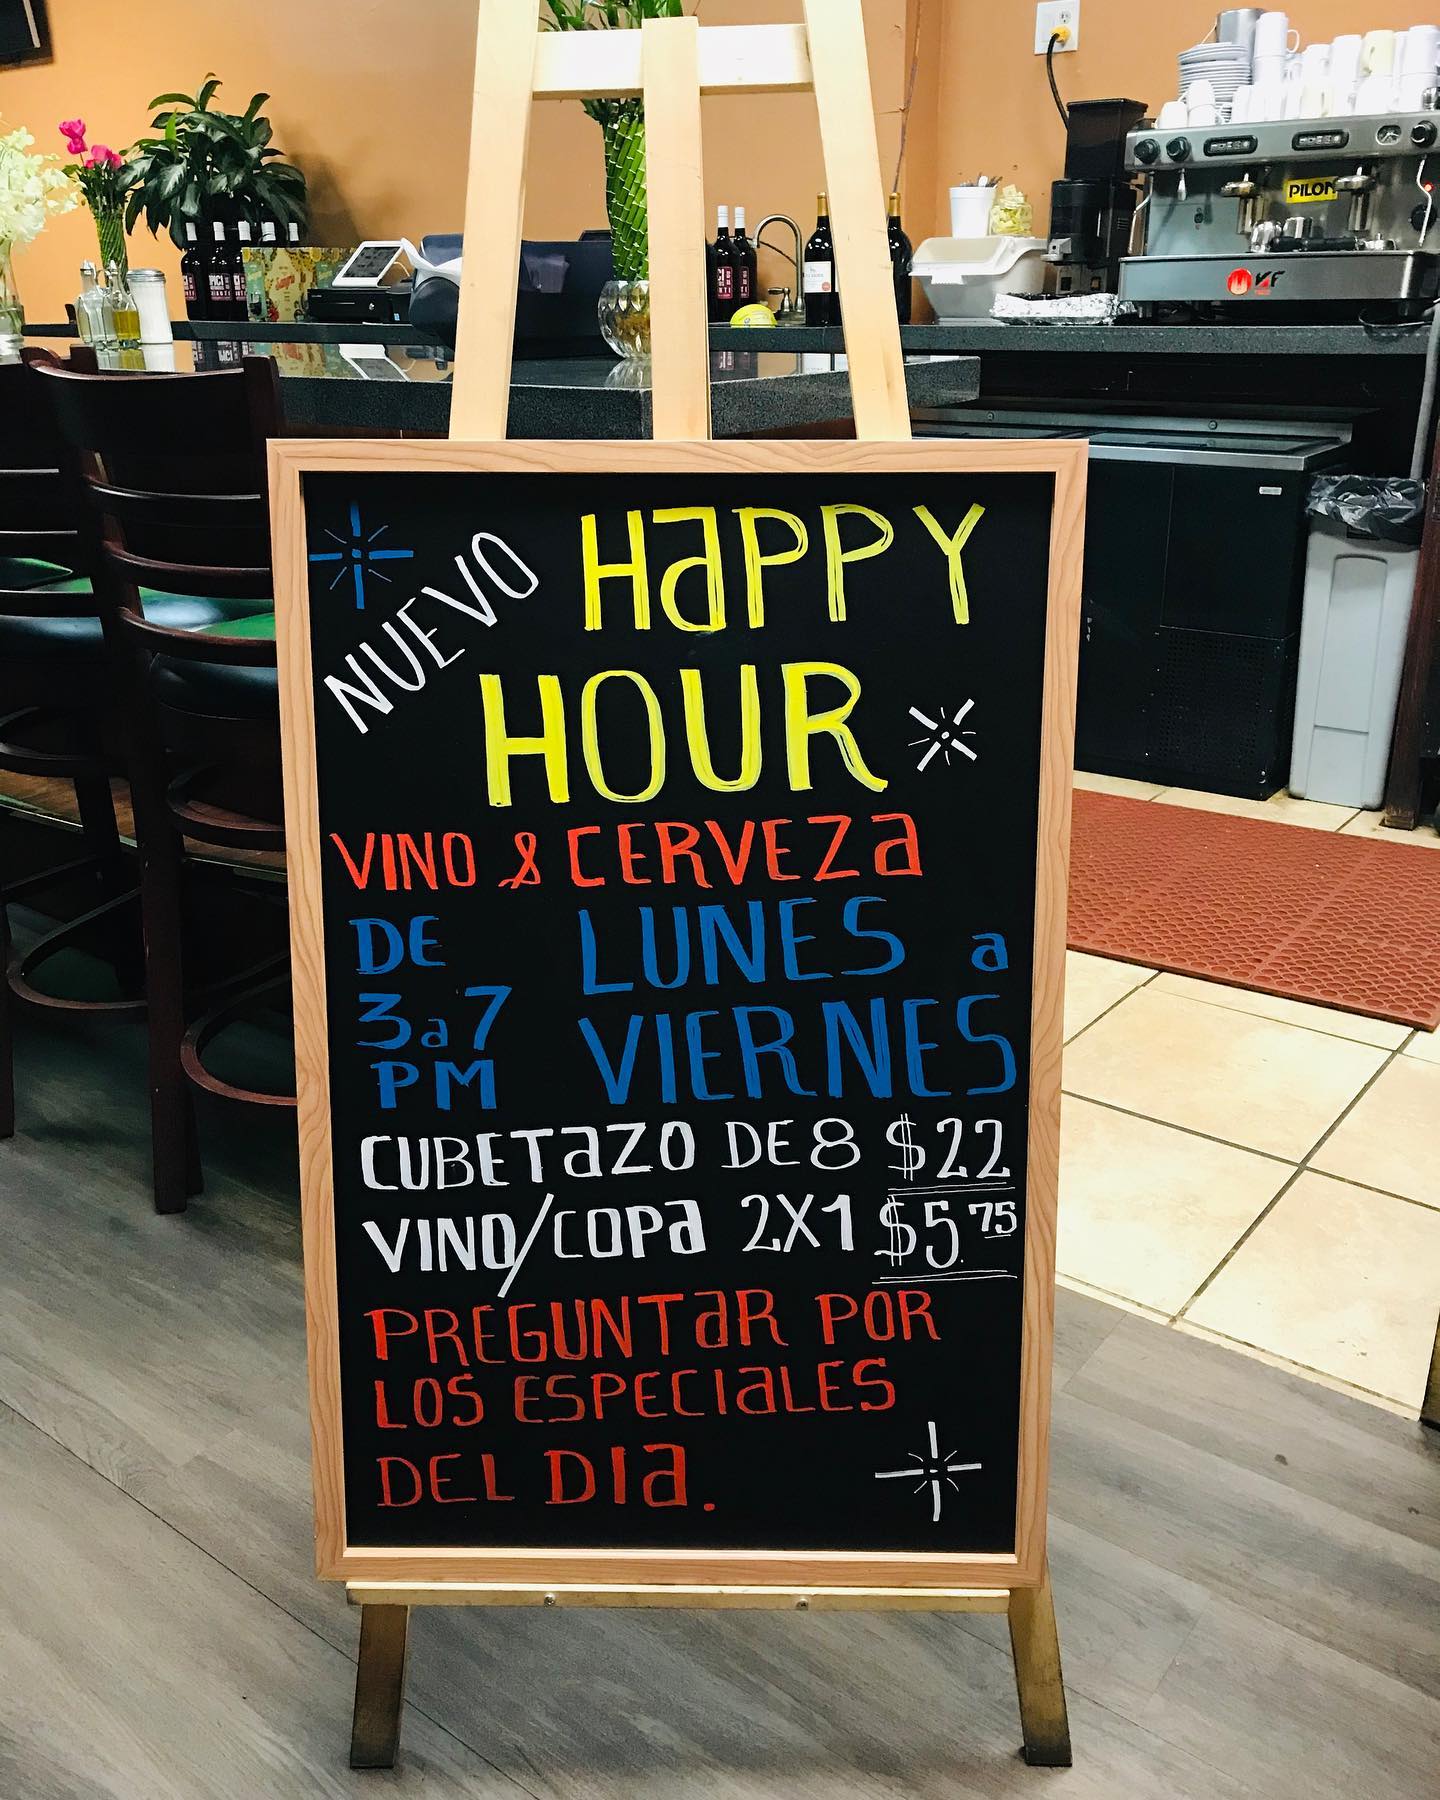 NUEVO HaPPY
HOUR
VINO & CERVEZa
DE LUNES a
3a7 VIERNES
PM
CUBETaZO DE 8 $22
VINO/COPa 2X1 $5.75
PREGUNTaR POR
LOS ESPECIaLES
DEL DIa.
PILON